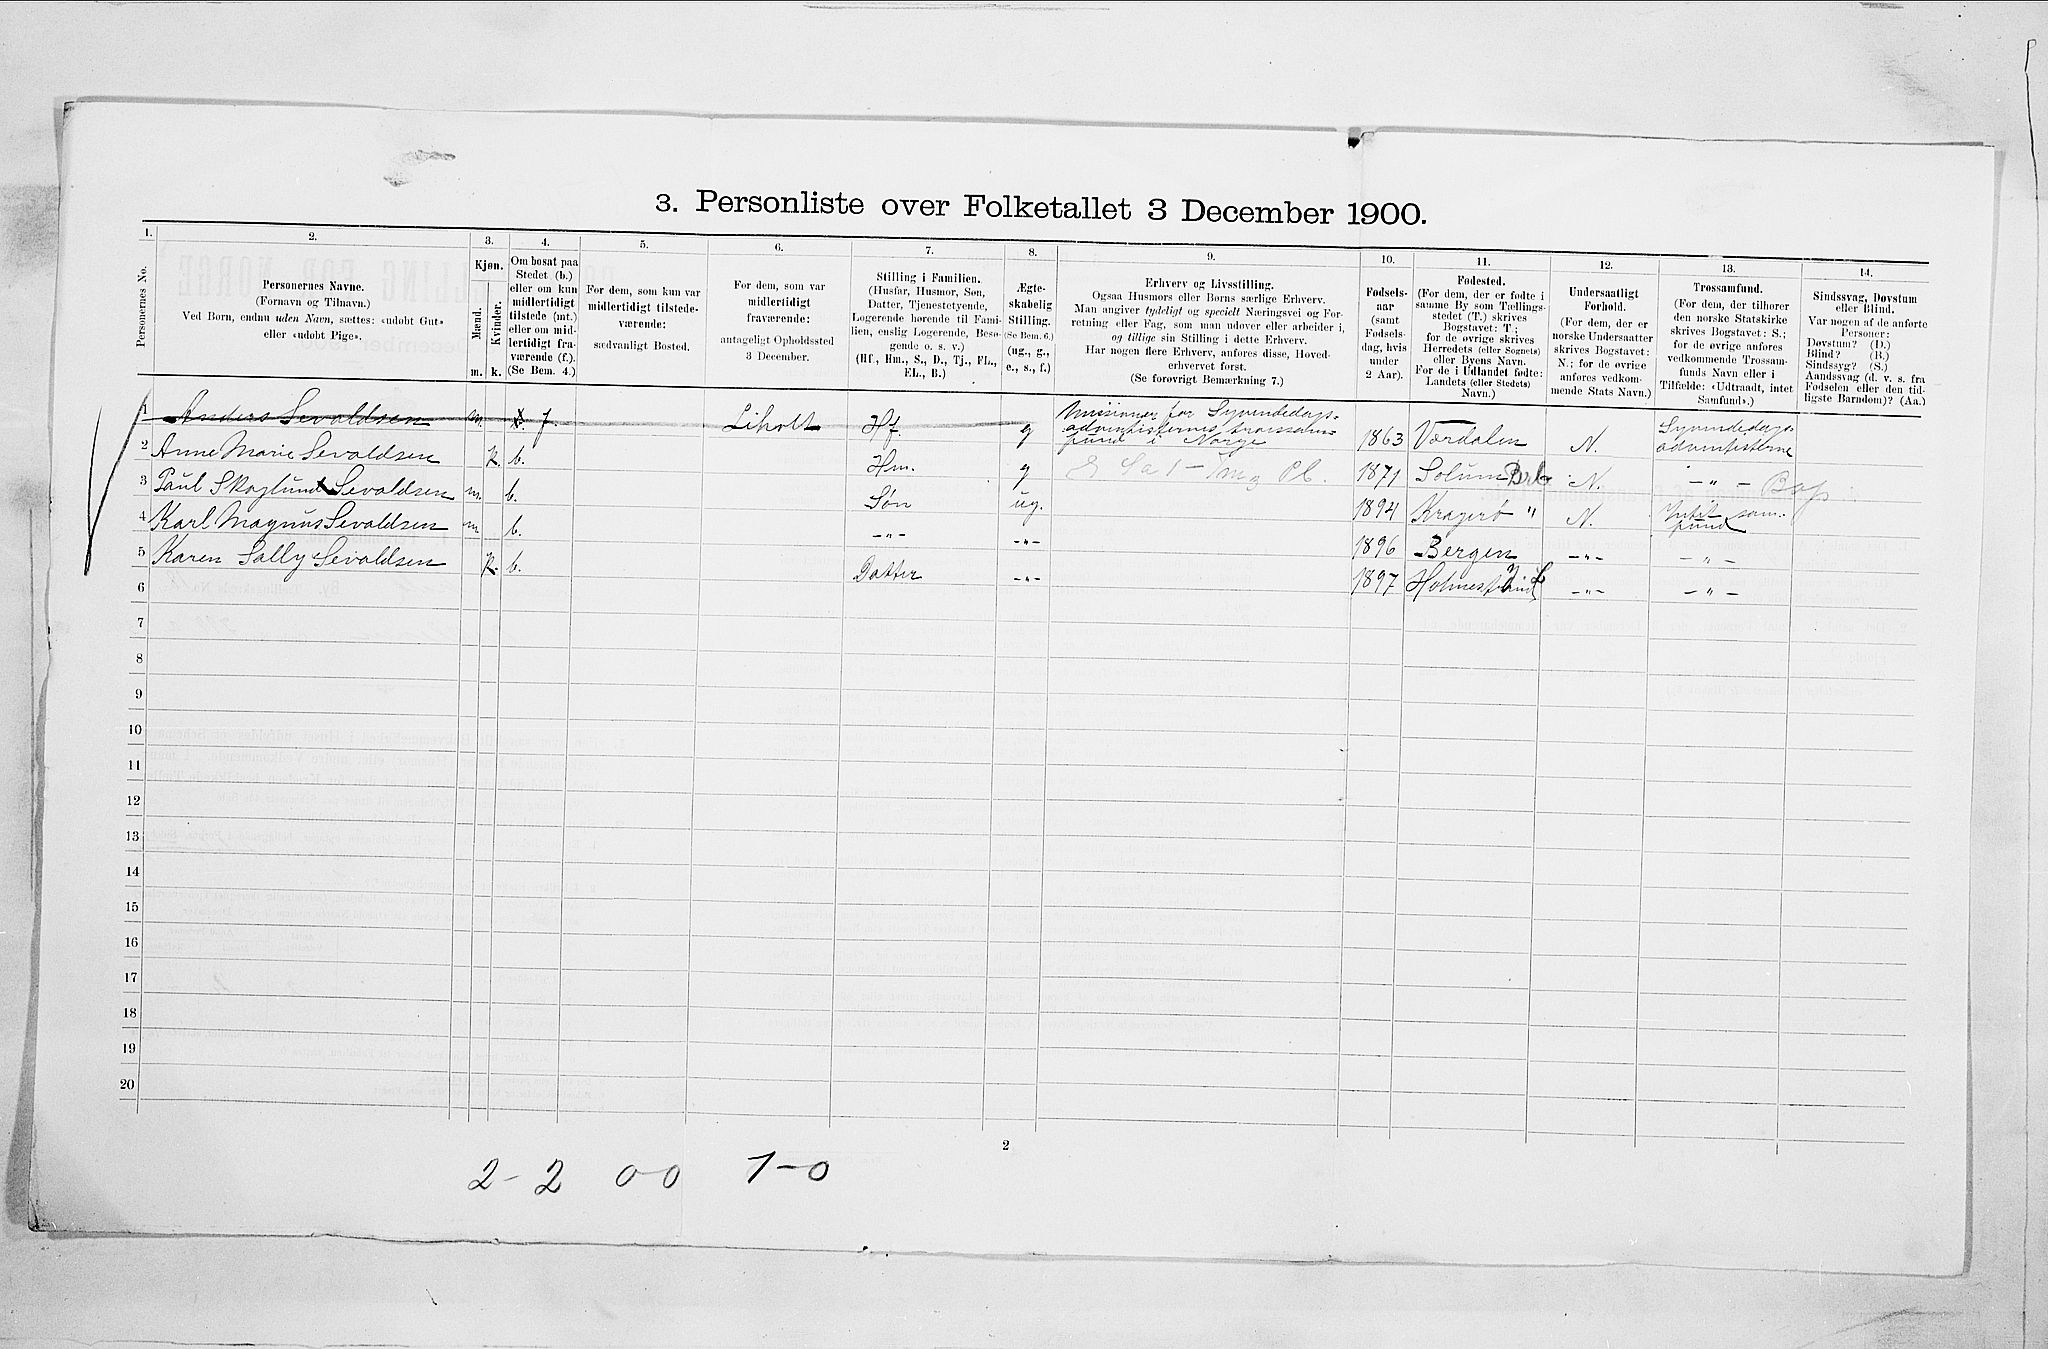 3. Personliste over Folketallet 3 December 1900.
1.
2.
3.
4.
5.
6.
7.
8.
9.
10.
11.
12.
13.
14.
Personernes No.
Personernes Navne.
(Fornavn og Tilnavn.)
Ved Børn, endnu uden Navn, sættes: «udøbt Gut»
eller «udøbt Pige».
Kjøn.
Mænd.
Kvinder.
m.
k.
Om bosat paa
Stedet (b.)
eller om kun
midlertidigt
tilstede (mt.)
eller om mid-
lertidigt fra-
værende (f.).
(Se Bem. 4.)
For dem, som kun var
midlertidigt tilstede-
værende:
sædvanligt Bosted.
For dem, som var
midlertidigt
fraværende:
antageligt Opholdssted
3 December.
Stilling i Familien.
(Husfar, Husmor, Søn,
Datter, Tjenestetyende,
Logerende hørende til Fami-
lien, enslig Logerende, Besø-
gende o. s. v.)
(Hf., Hm., S., D., Tj., FL.,
EL., B.)
Ægte-
skabelig
Stilling.
(Se Bem. 6.)
(ug., g.,
e., s., f.)
Erhverv og Livsstilling.
Ogsaa Husmors eller Børns særlige Erhverv.
Man angiver tydeligt og specielt Næringsvei og For-
retning eller Fag, som man udøver eller arbeider i,
og tillige sin Stilling i dette Erhverv.
Har nogen flere Erhverv, anføres disse, Hoved-
erhvervet først.
(Se forøvrigt Bemærkning 7.)
Fødsels-
aar
(samt
Fødsels-
dag, hvis
under
2 Aar).
Fødested.
(For dem, der er fødte i
samme By som Tællings-
stedet (T.) skrives
Bogstavet: T.;
for de øvrige skrives
Herredets (eller Sognets)
eller Byens Navn.
For de i Udlandet fødte:
Landets (eller Stedets)
Navn.)
Undersaatligt
Forhold.
(For dem, der er
norske Undersaatter
skrives Bogstavet:
N.; for de øvrige
anføres vedkom-
mende Stats Navn.)
Trossamfund.
(For dem, der tilhører
den norske Statskirke
skrives Bogstavet: S.;
for de øvrige anføres
vedkommende Trossam-
funds Navn eller i
Tilfælde: «Udtraadt, intet
Samfund».)
Sindssvag, Døvstum
eller Blind.
Var nogen af de anførte
Personer:
Døvstum? (D.)
Blind? (B.)
Sindssyg? (S.)
Aandssvag (d. v. s. fra
Fødselen eller den tid-
ligste Barndom)? (Aa.)
1 Anders Sevaldsen m. f. Liholt Hf. g Misionær for Syvendedags-
adventisternes trossam-
fund i Norge 1863 Værdalen N. Syvendedags-
adventisterne
2 Anne Marie Sevaldsen k. b. Hm. g 1871 Solum N. — „ —
3 Paul Skoglund Sevaldsen m. b. Søn ug. 1894 Kragerø " N. Intet sam-
fund
4 Karl Magnus Sevaldsen m b. —„— —„— 1896 Bergen —„— — „ —
5 Karen Sally Sevaldsen k. b. Datter —„— 1897 Holmestrand —„— — „ —
6
7
8
9
10
11
12
13
14
15
16
17
18
19
20
2
2-2 0-0 1-0